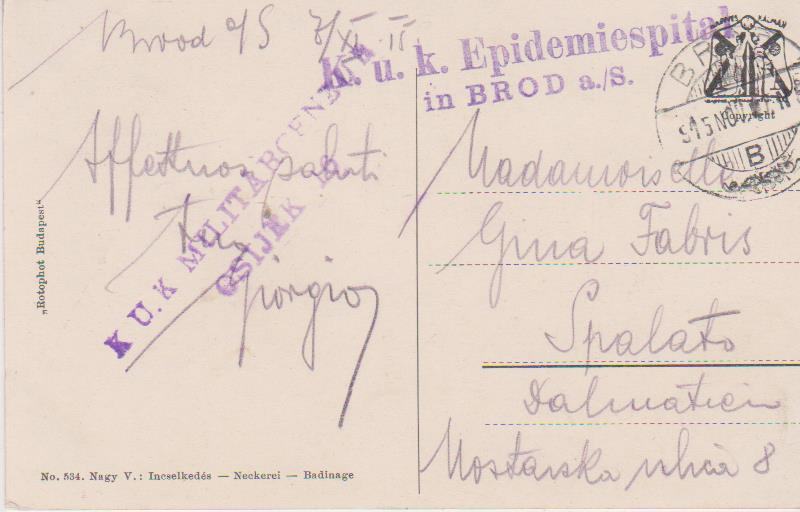 Brod a/S 7/XI 15
K. u. k. Epidemiespital
in BROD a./S.
K. U. K. MILITÄRCENSUR
OSIJEK
Affettuosi saluti
Tuo
Giorgio
Copyright
BR
915 NOV
B
Madamoiselle
Gina Fabris
Spalato
Dalmatien
Mostarska ulica 8
„Rotophot Budapest"
No. 534. Nagy V.: Incselkedés — Neckerei — Badinage